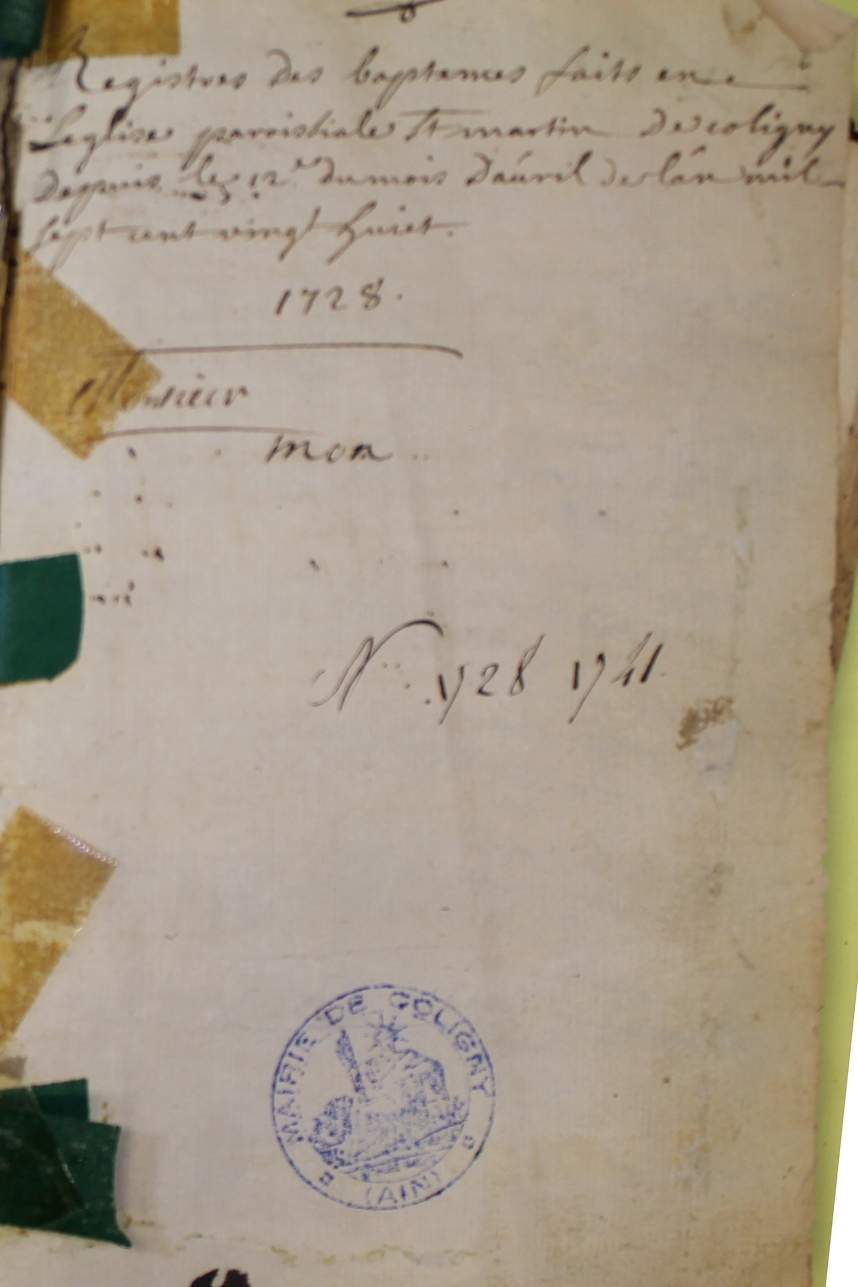 Registres des baptemes faits en
Leglise paroissiale St martin de coligny
depuis le 12e du mois d'auril de l'an mil
sept cent vingt huict.
1728.
Monsieur
mon
N 1728 1741
MAIRIE DE COLIGNY
(AIN)